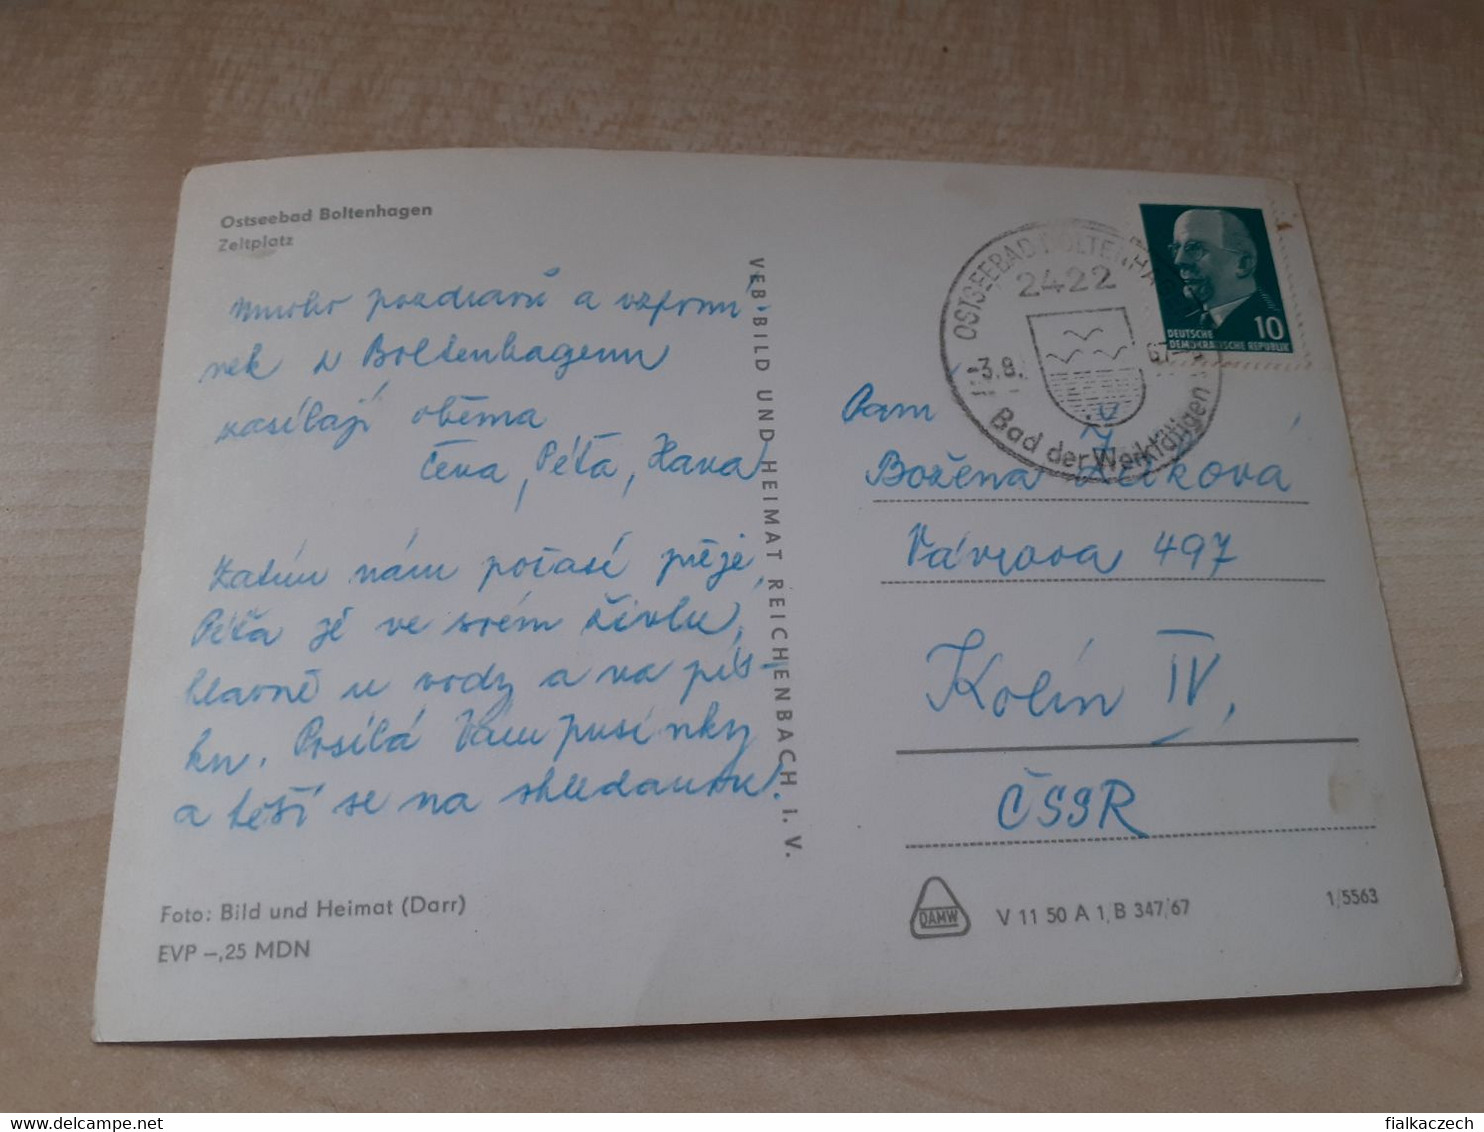 Ostseebad Boltenhagen
Zeltplatz
Mnoho pozdravů a vzpomí-
nek z Boltenhagenu
zasílají oběma
Péťa, Hana
Zatím nám počasí přeje,
Péťa je ve svém živlu,
hlavně u vody a na pís-
ku. Posílá Vám pusinky
a těší se na shledanou!
Foto: Bild und Heimat (Darr)
EVP –,25 MDN
VEB BILD UND HEIMAT REICHENBACH I. V.
OSTSEEBAD BOLTENHA
2422
-3.8. 67-
Bad der Werktätigen
10
DEUTSCHE
DEMOKRATISCHE REPUBLIK
Paní
Božena
Vávrova 497
Kolín IV,
ČSSR
DAMW
V 11 50 A 1/B 347/67
1/5563
delcampe.net
fialkaczech